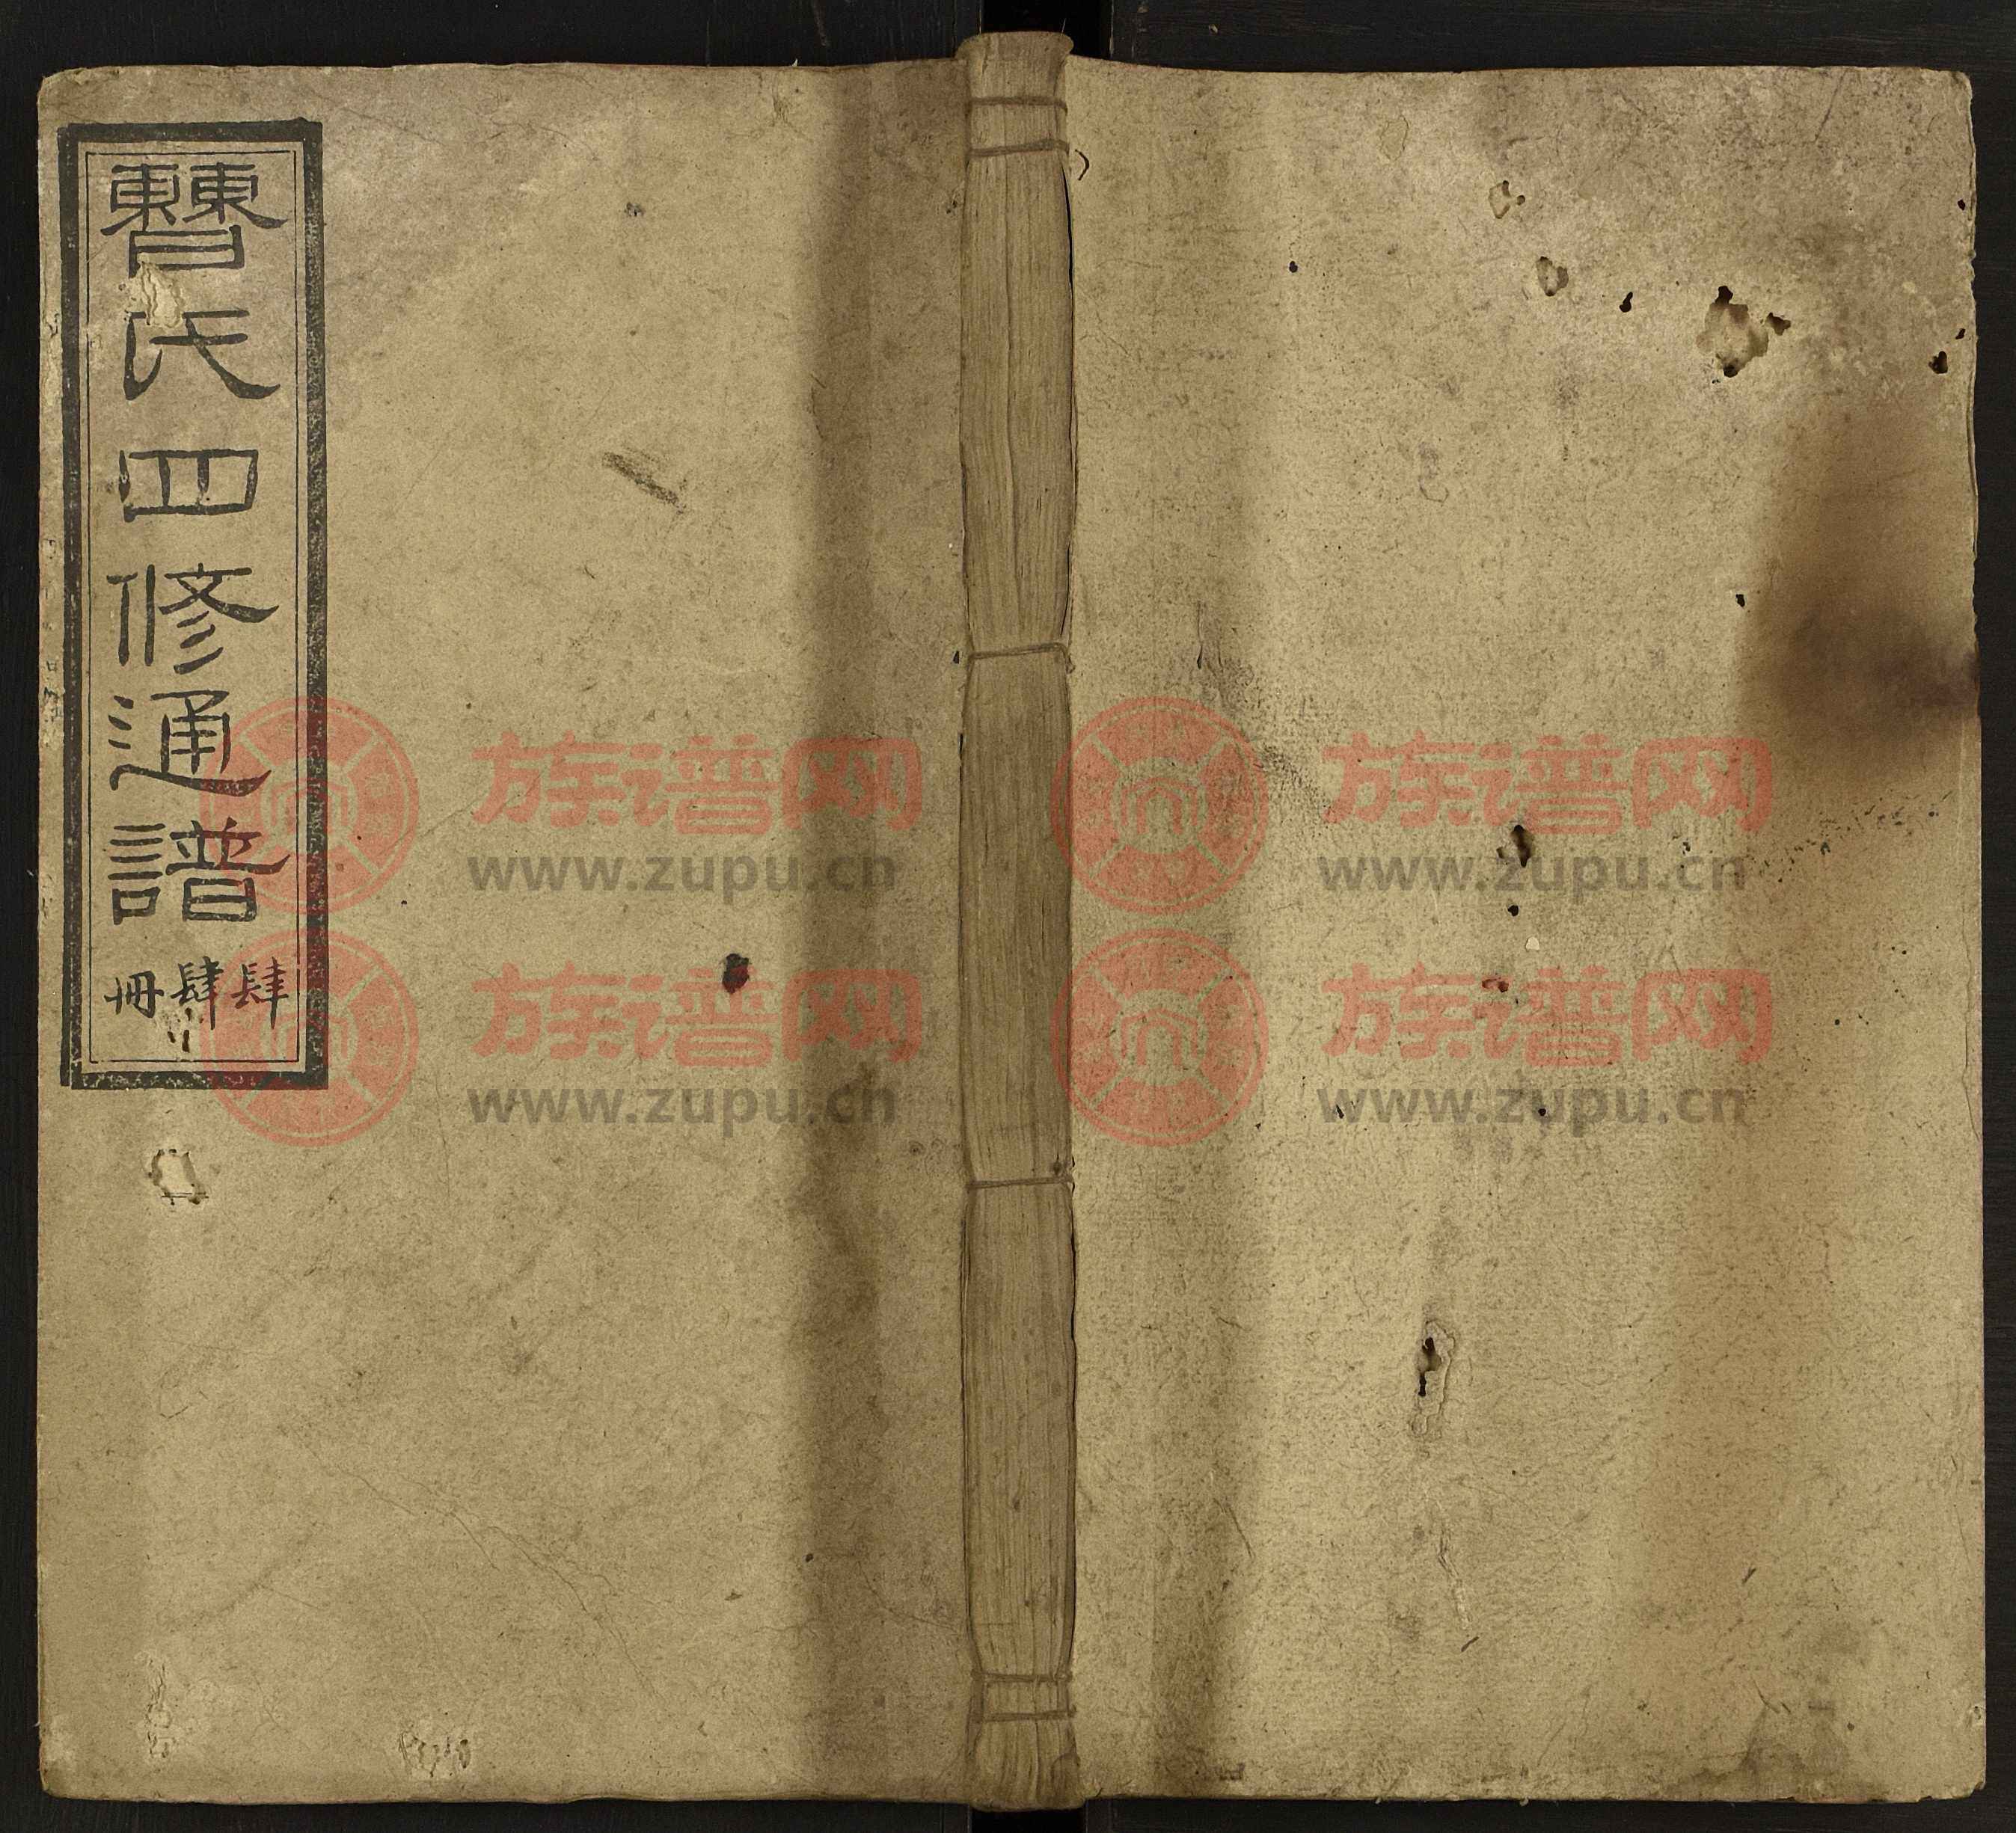 㯥氏四修通譜
肆肆冊
族谱网
www.zupu.cn
族谱网
www.zupu.cn
族谱网
www.zupu.cn
族谱网
www.zupu.cn